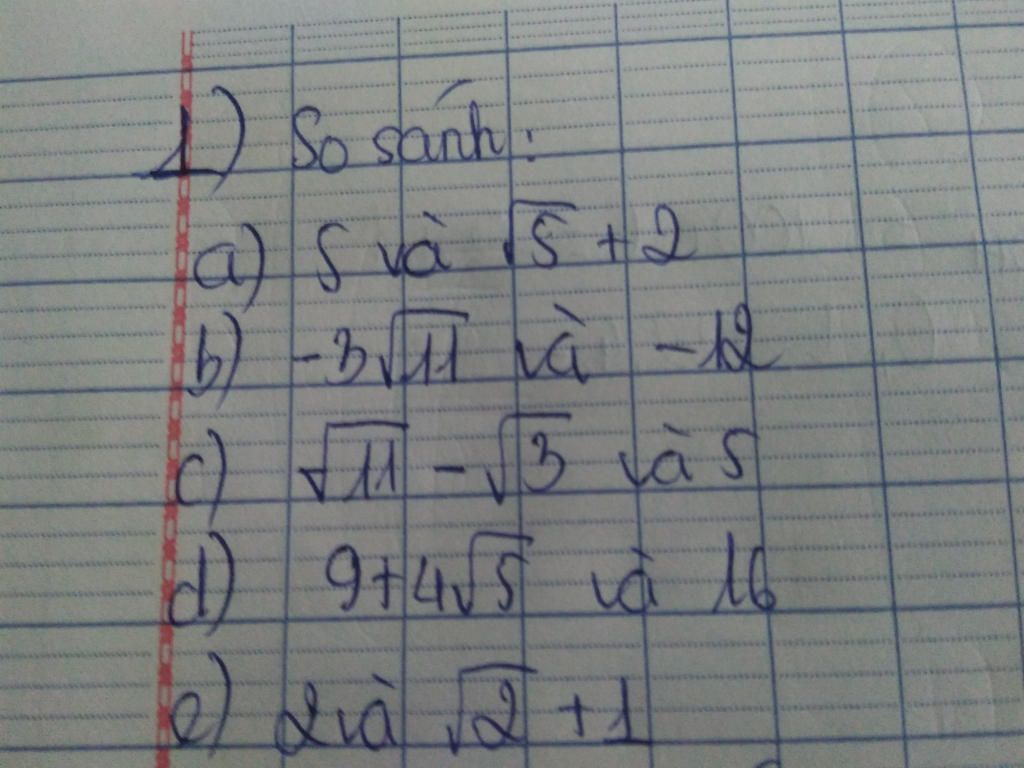 1) So sánh:
a) 5 và √5 + 2
b) -3√11 và -12
c) √11 - √3 và 5
d) 9+4√5 và 16
e) 2 và √2 + 1